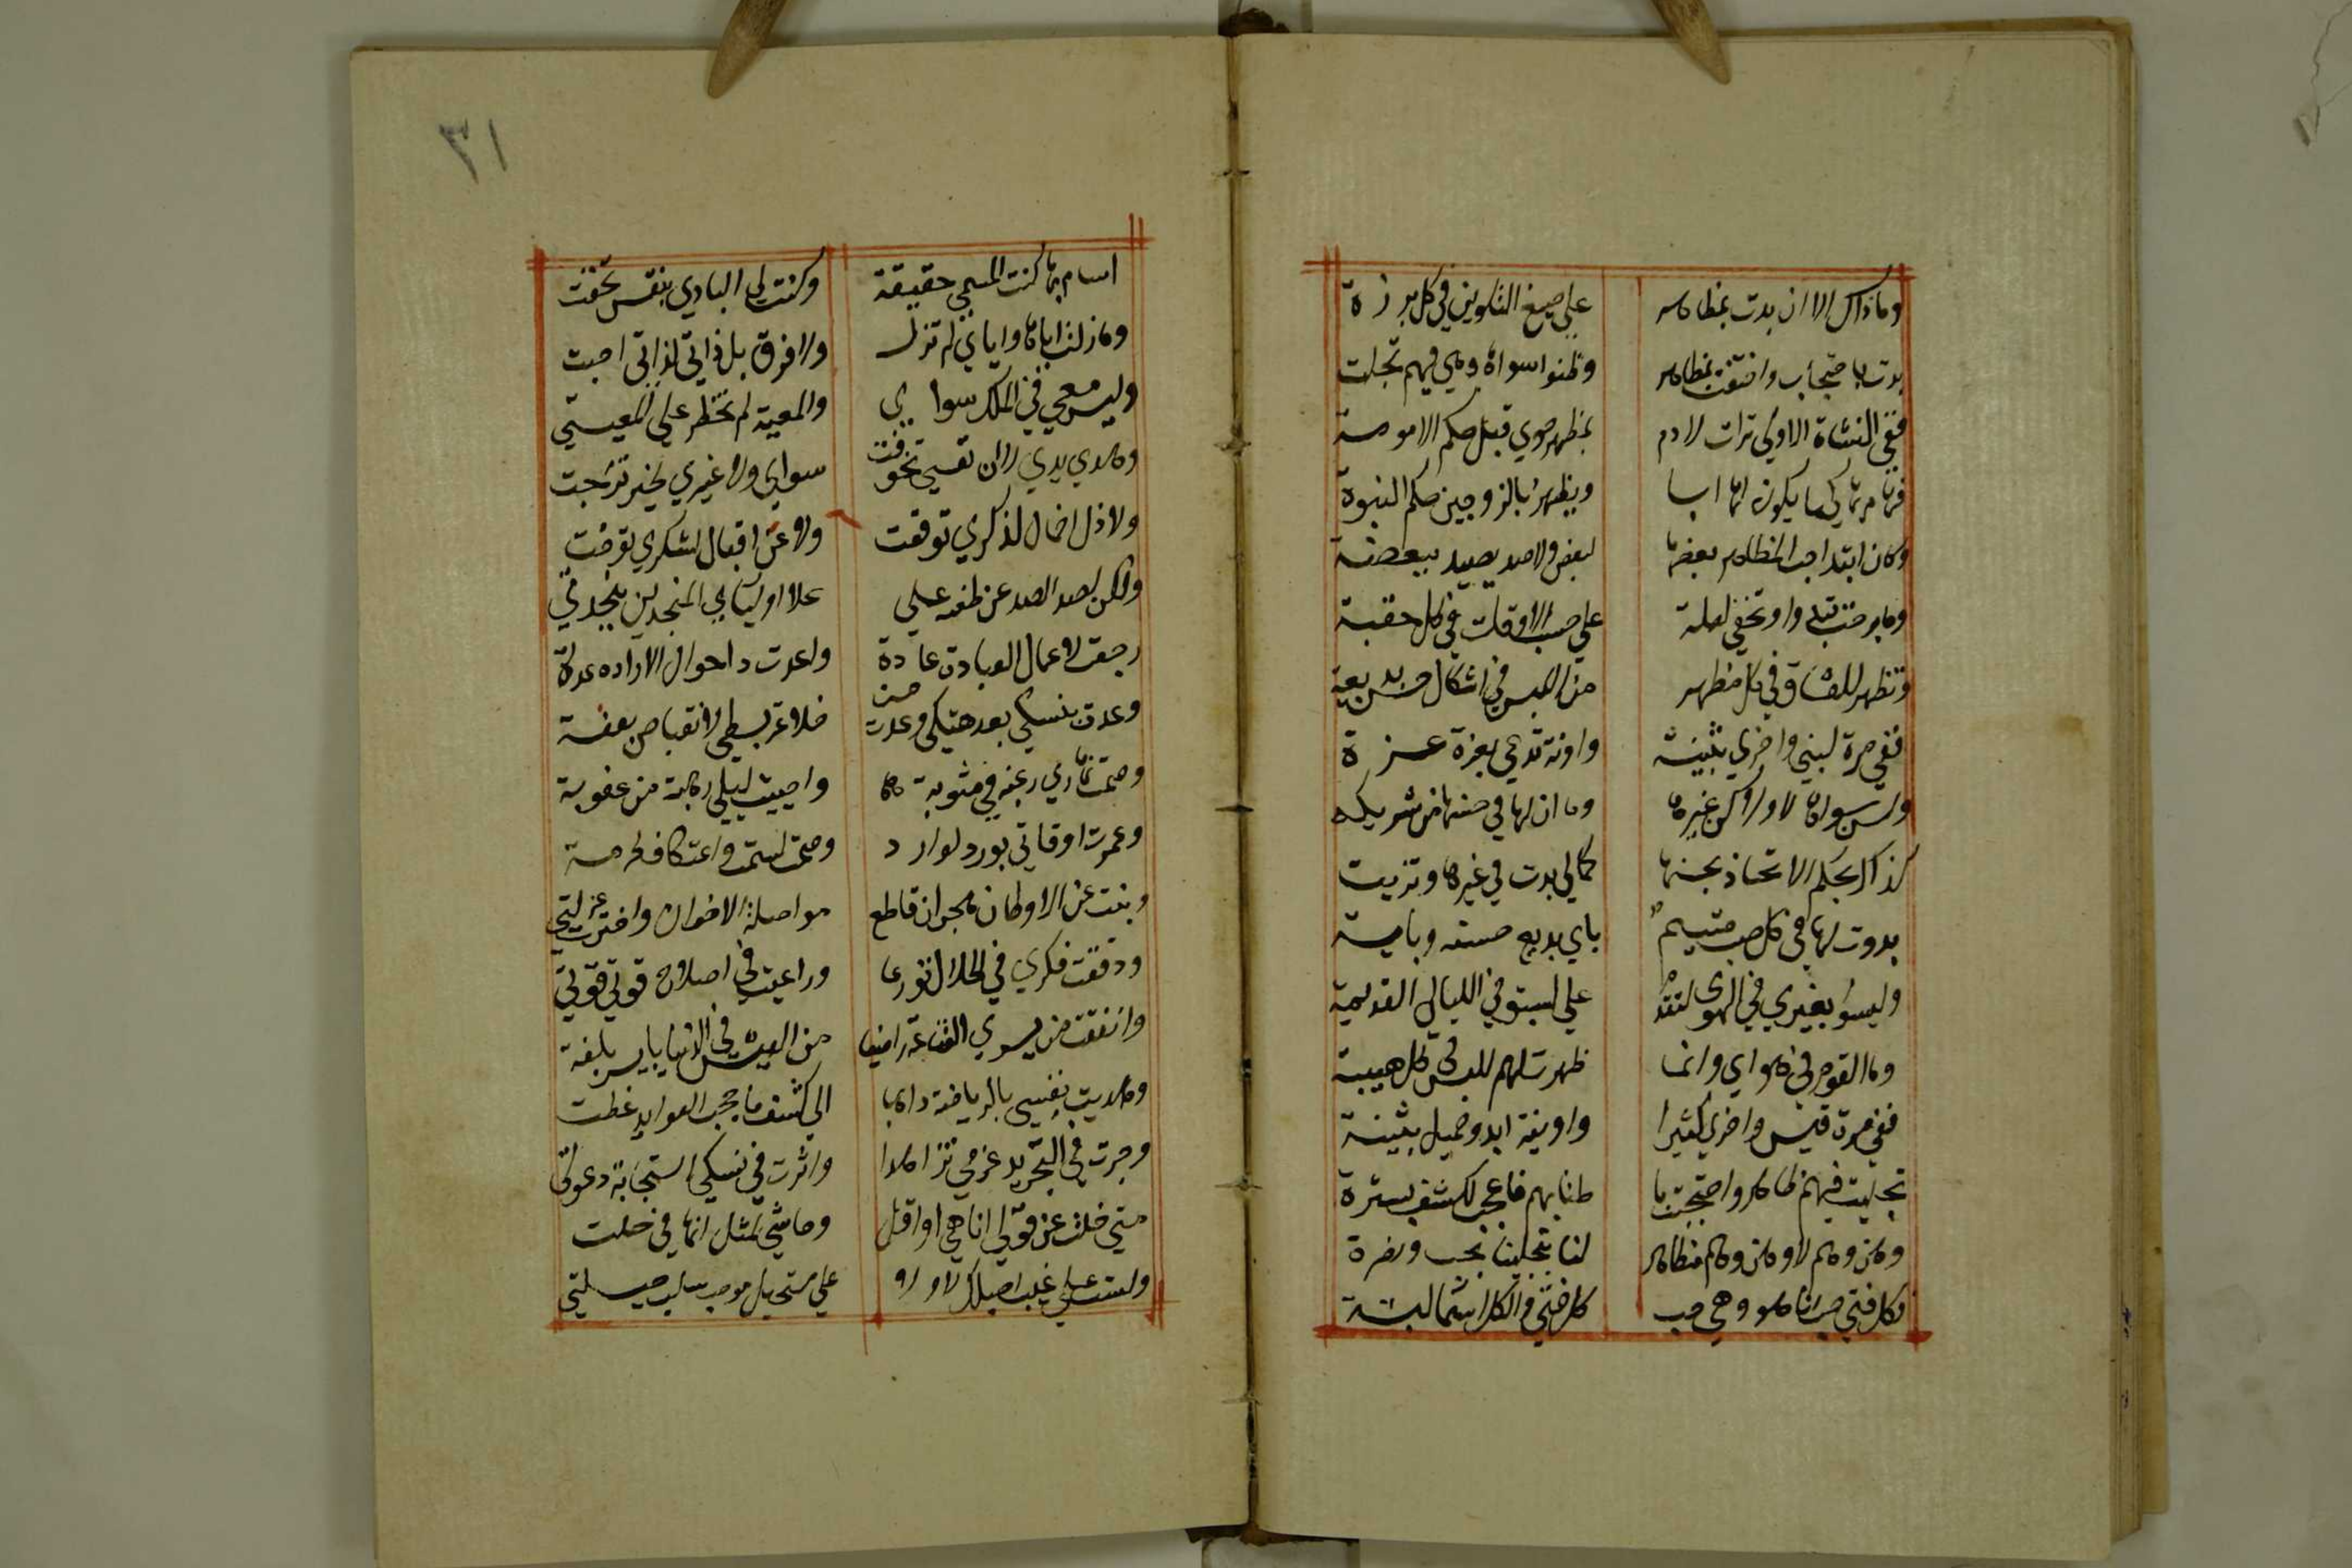 وماذاك الا ان بدت بمظاهر على صبغ التلوين في كل برزة
بدت باحتجاب واختفت بمظاهر وظنوا سواها وهي فيهم تجلت
ففي النشاة الاولى ترات لادم بمظهر حوي قبل حكم الامومة
فهام بها كيما يكون لها ابا ويظهر بالزوجين حكم البنوة
وكان ابتدا حب المظاهر بعضها لبعض ولا ضد يصد ببعضة
وما برحت تبدوا وتخفي لعلة على حسب الاوقات في كل حقبة
وتظهر للعشاق في كل مظهر من اللبس في اشكال حسن بديعة
ففي مرة لبني واخري بثينة واونة تدعي بعزة عزة
ولسن سواها لا ولا كن غيرها وما ان لها في حسنها من شريكه
كذاك بحكم الاتحاد بحسنها كمالي بدت في غيرها وتزيت
بدوت لها في كل صب متيم باي بديع حسنه وباية
وليسوا بغيري في الهوي لتقدم علي لسبق في الليالي القديمة
وما القوم غيري في هواي وانما ظهرت لهم للبس في كل هيبة
ففي مرة قيس واخري كثيرا واونة ابدو جميل بثينة
تجليت فيهم ظاهرا واحتجبت با طنا بهم فاعجب لكشف بسترة
وهن وهم لا وهن وهم مظاهر لنا بتجلينا بحب ونضرة
فكل فتي حب انا هو وهي حب كل فتي والكل اسما لبسة
٣١
اسام بها كنت المسمي حقيقة وكنت لي البادي بنفس تخفت
وما زلت اياها واياي لم تزل ولا فرق بل ذاتي لذاتي احبت
وليس معي في الملك سواي والمعية لم تخطر علي المعيتي
وهدي يدي لا ان نفسي تخوفت سواي ولا غيري لخير ترجت
ولا ذل اخمال لذكري توقعت ولا عز اقبال لشكري توخت
ولكن لصد الضد عن طعنه علي علا اوليائي المنجدين بنجدتي
رجعت لاعمال العبادة عادة واعددت احوال الارادة عدتي
وعدت بنسكي بعد هتكي وعدت من خلاعة بسطي لانقباض بعفة
وصمت نهاري رغبة في مثوبة واحييت ليلي رهبة من عقوبة
وعمرت اوقاتي بورد لوارد وصمت لسمت واعتكاف لحرمة
وبنت عن الاوطان هجران قاطع مواصلة الاخوان واخترت عزلتي
ودققت فكري في الحلال تورعا وراعيت في اصلاح قوتي قوتي
وانفقت من يسري القناعة راضيا من العيش في الدنيا بايسر بلغة
وهذبت نفسي بالرياضة ذاهبا الي كشف ما حجب العوايد غطت
وجردت في التجريد عزمي تزهدا واثرت في نسكي استجابة دعوتي
متي حلت عن قولي انا هي او اقل وحاشي لمثلي انها في حلت
ولست علي غيب احيلك لا ولا علي مستحيل موجب سلب حيلتي